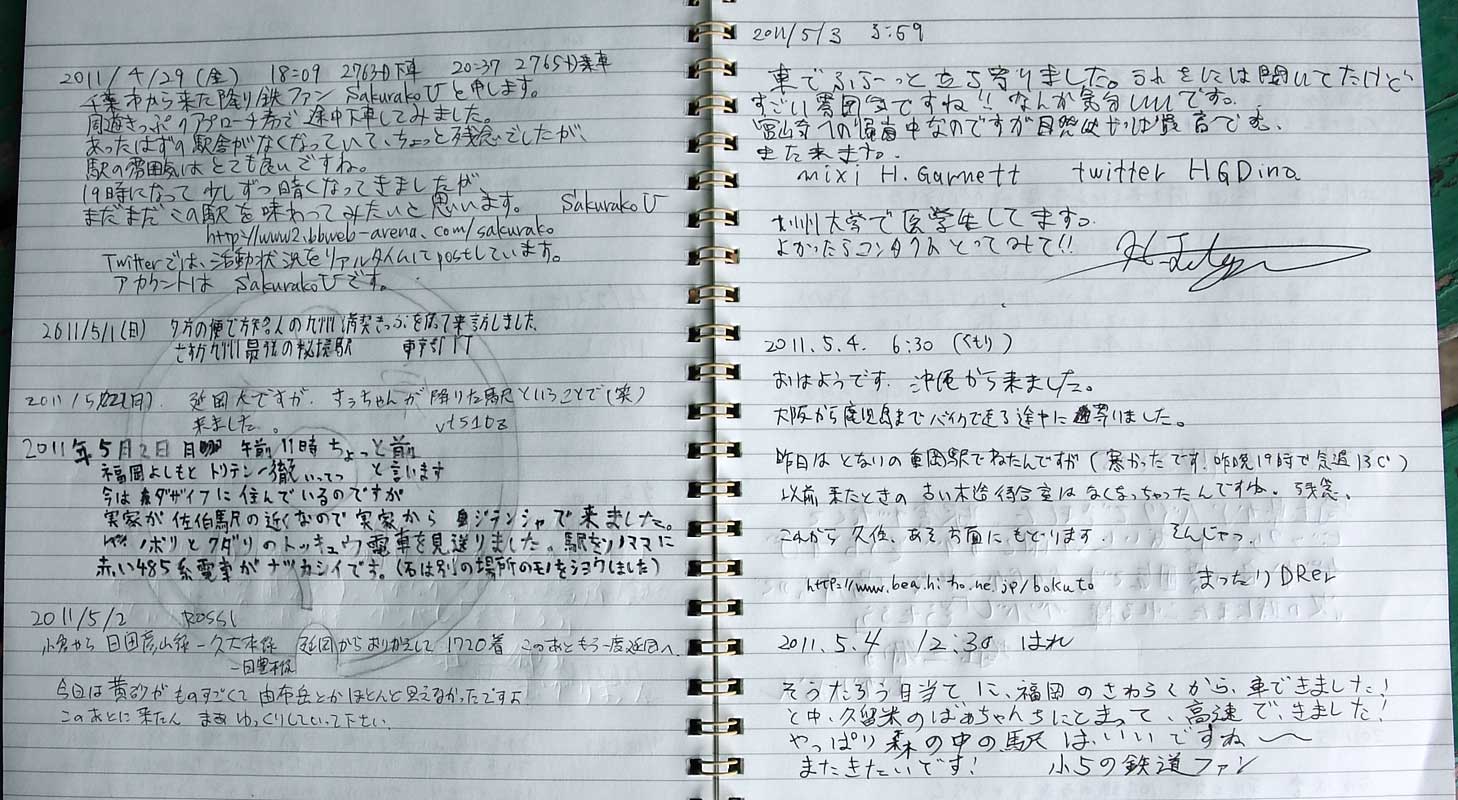 2011/4/29(金) 18:09 2763D下車 20:37 2765D乗車
千葉市から来た降り鉄ファン Sakurakoひと申します。
周遊きっぷのアプローチ券で途中下車してみました。
あったはずの駅舎がなくなっていて、ちょっと残念でしたが、
駅の雰囲気はとても良いですね。
19時になって少しずつ暗くなってきましたが
まだまだこの駅を味わってみたいと思います。 Sakurakoひ
http://www2.bbweb-arena.com/sakurako
Twitterでは、活動状況をリアルタイムにてpostしています。
アカウントは Sakurakoひです。
2011/5/1(日) 夕方の便で 九州満喫きっぷを使って来訪しました
さすが九州最強の秘境駅
2011/5/2(月). 延岡人ですが、すぅちゃんが降りた駅ということで(笑)
来ました。 vts10z
2011年5月2日 月曜 午前11時ちょっと前
福岡よしもと トリテン一徹 と言います
今はダザイフに住んでいるのですが
実家が佐伯駅の近くなので実家から ジテンシャで来ました。
ノボリとクダリのトッキュウ電車を見送りました。駅をソノママに
赤い485系電車がナツカシイです。(石は別の場所のモノをシヨウしました)
2011/5/2 ROSSI
小倉から 日田彦山線-久大本線 延岡からおりかえして 1720着 このあともう一度延岡へ
-日豊本線
今日は黄砂がものすごくて 由布岳とかほとんど見えなかったですよ
このあとに来た人 まぁゆっくりしていって下さい
2011/5/3 3:59
車でふらーっと立ち寄りました。うわさには聞いてたけど
すごい雰囲気ですね!! なんか気分いいです。
富山 への帰省中なのですが自然はやっぱ最高です。
また来ます。
mixi H.Garnett twitter HGDino
九州大学で医学生してます。
よかったらコンタクトとってみて!!
2011.5.4. 6:30 (くもり)
おはようです. 沖縄から来ました。
大阪から鹿児島までバイクで走る途中に寄りました。
昨日はとなりの重岡駅でねたんですが(寒かったです!昨晩19時で気温13℃)
以前来たときの 古い木造待合室はなくなっちゃったんですね。残念。
これから 久住、あそ方面に もどります. そんじゃっ.
http://www.bea.hi-ho.ne.jp/bokuto まったりDRer
2011.5.4 12:30 はれ
そうたろう目当てに、福岡のさわらくから、車できました!
と中、久留米のばあちゃんちにとまって、高速で、きました!
やっぱり森の中の駅は、いいですね〜
またきたいです! 小5の鉄道ファン